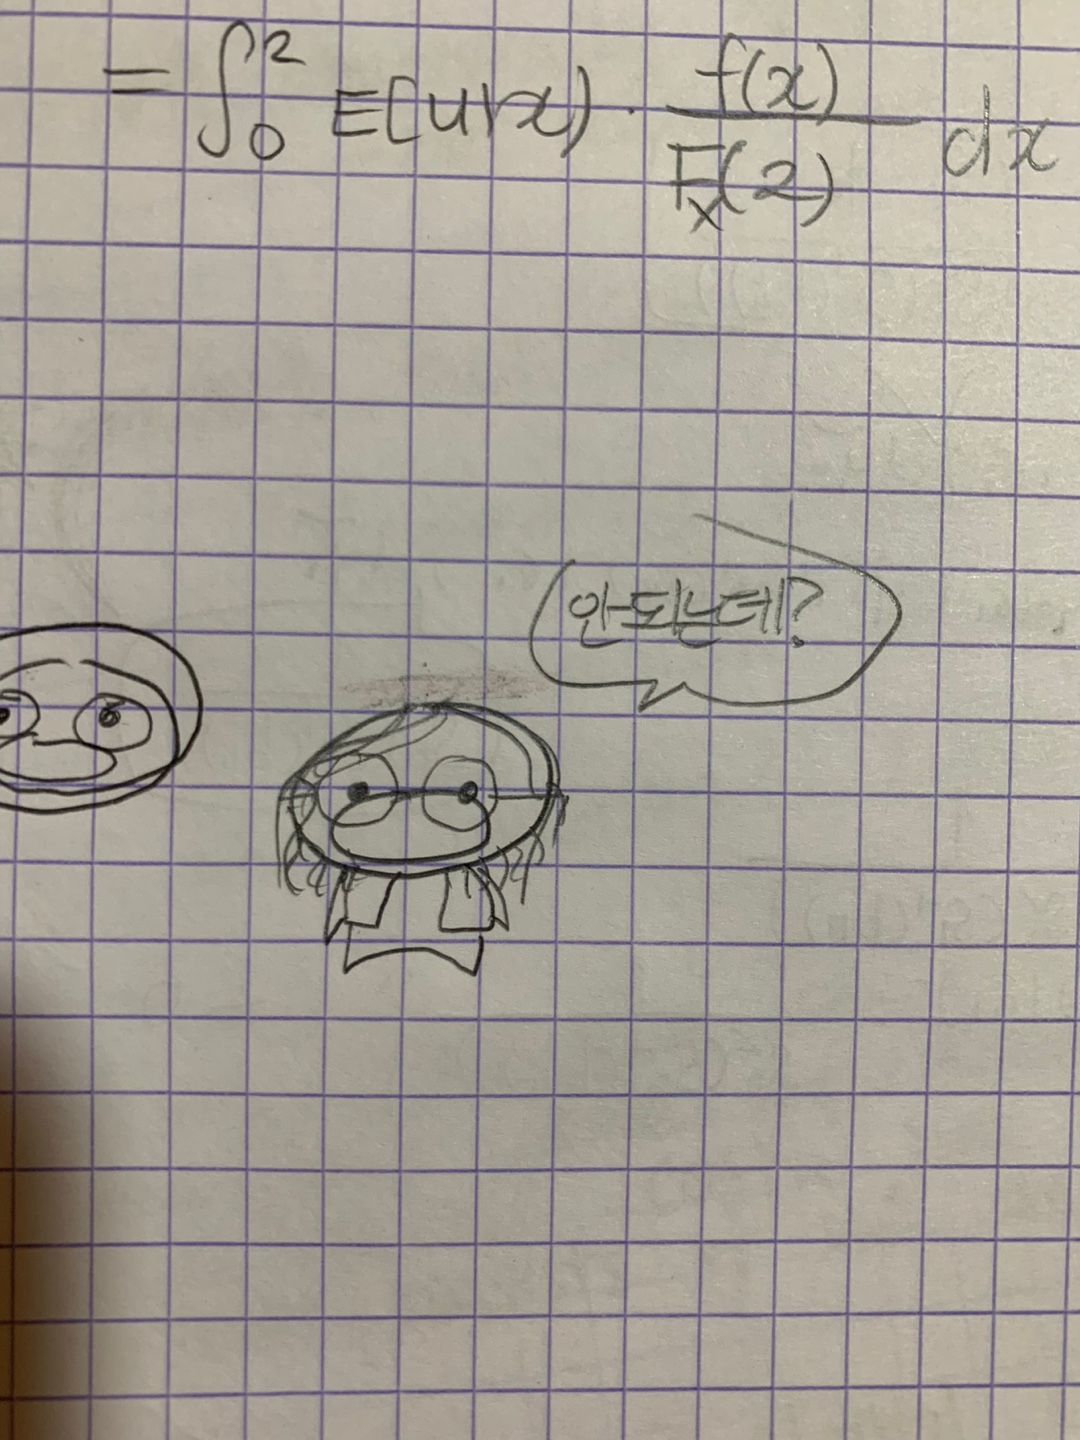 = ∫₀² E(u|x) · f(x)/Fₓ(2) dx
안되는데?